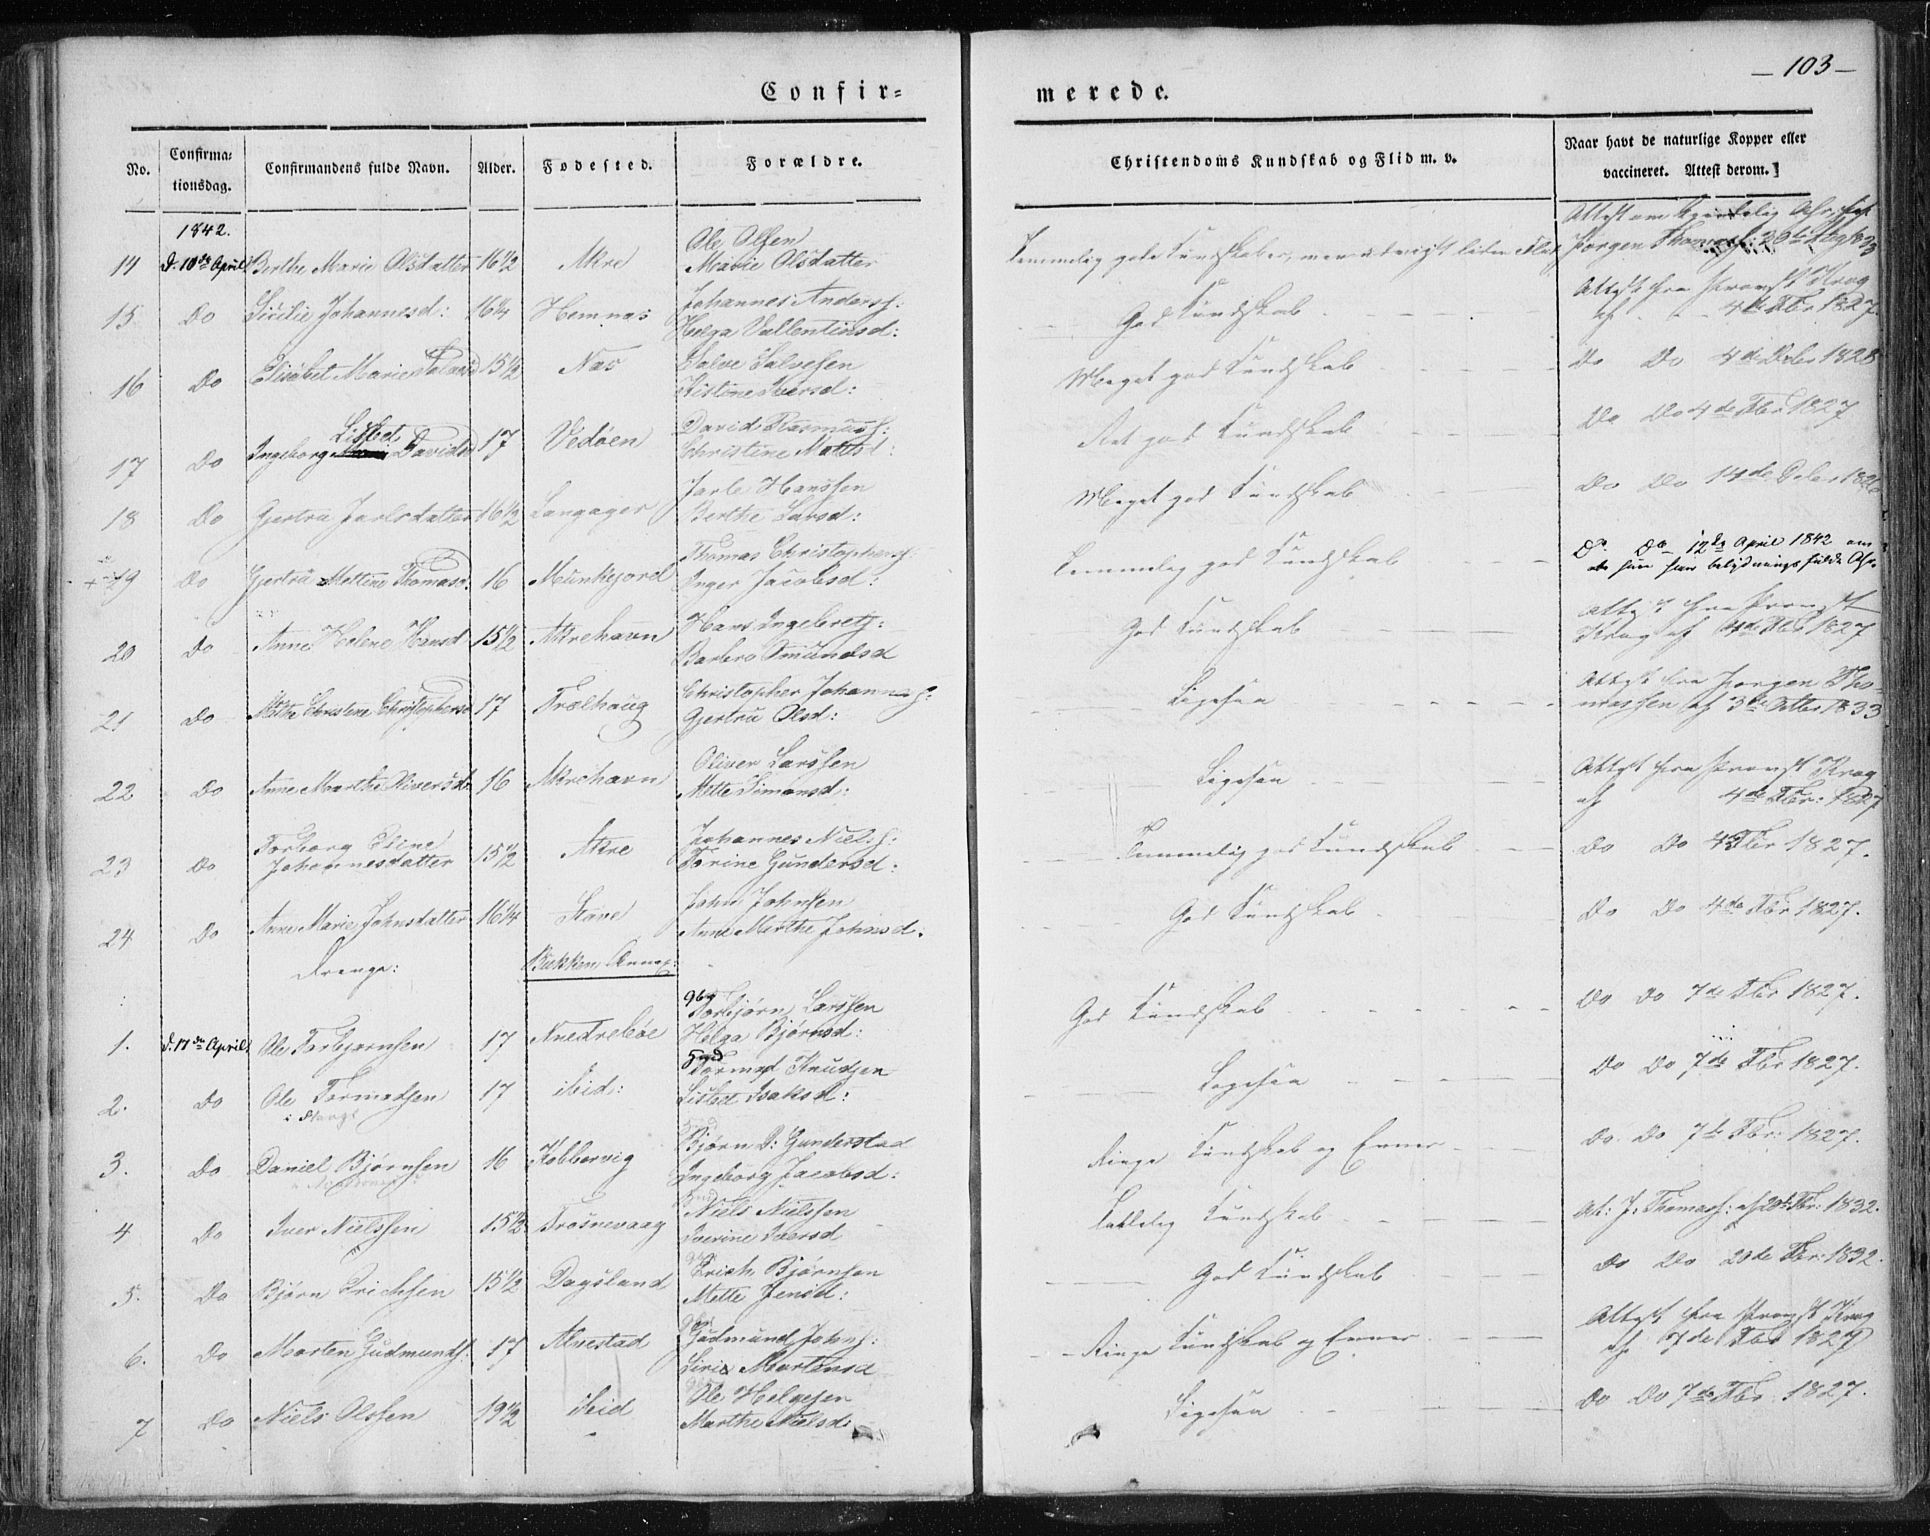 — 103 —
Confir=
merede.
No. Confirma=tionsdag. Confirmandens fulde Navn. Alder. Fødested. Forældre. Christendoms Kundskab og Flid m. v. Naar havt de naturlige Kopper eller vaccineret. Attest derom.
1842.
Ole Olsen
14 d. 10de April Berthe Marie Olsdatter 16½ Akre Marie Olsdatter
Temmelig gode Kundskaber, men liden Flid Jørgen Thomass: 26de 1833
15 Do Sicilie Johannesd: 16¼ Hemnæs Johannes Anders:
Helga Vallentinsd:
God Kundskab
Attest fra Provst Krog
af 4de Fbr 1827.
16 Do Elisabet Marie Salvesd 15½ Næs Salve Salvesen
Kistine Iversd:
Meget god Kundskab
Do Do 4de Debr 1828
17 Do Ingeborg Lisbet Davidsd 17 Vedøen David Rasmuss:
Christine Matisd:
Ret god Kundskab
Do Do 4de Fbr 1827
18 Do Gjertru Jarlsdatter 16½ Langager Jarle Hanssen
Berthe Larsd:
Meget god Kundskab
Do Do 14de Debr
19 Do Gjertru Mettine Thomasd. 16 Munkejord Thomas Christophers:
Inger Jacobsd:
Temmelig god Kundskab
Do. Do 12te April 1842 om
at hun har
20 Do Anne Helene Hansd 15½ Akrehavn Hans Ingebrets:
Barbro Omundsd
God Kundskab
Attest fra Provst
Krog af 4de Fbr 1827
21 Do Mette Christene Christophersd 17 Trælhaug Christopher Johannes:
Gjertru Olsd:
Ligesaa
Attest fra Jørgen Tho=
massen af 3de Octbr 1833
22 Do Anne Marthe Oliversd: 16 Akrehavn Oliver Larssen
Mette Simonsd:
Ligesaa
Attest fra Provst Krog
af 4de Fbr: 1827
23 Do Torborg Eline
Johannesdatter 15½ Akre Johannes Niels:
Torine Gundersd:
Temmelig god Kundskab
Do Do 4de Fbr 1827.
24 Do Anne Marie Johnsdatter 16¼ Stave John Johnsen
Anne Marthe Johnsd:
God Kundskab
Do Do 4de Fbr 1827.
Drenge: Bukken Annex:
1. d. 17de April Ole Torbjørnsen 17 Nuedrebøe Torbjørn Larssen
Helga Bjørnsd:
God Kundskab
Do Do 7de Fbr 1827.
2. Do Ole Tormodsen 17 ibid: Tormod Knudsen
Lisbet Isaksd:
Ligesaa
Do Do 7de Fbr 1827.
3. Do Daniel Bjørnsen 16 Kobbervig Bjørn D: Gunderstad
Ingeborg Jacobsd:
Ringe Kundskab og Evner
Do Do 7de Fbr: 1827.
4 Do Iver Nielssen 15½ Trosnevaag Niels Nielssen
Iverine Iversd
Taalelig Kundskab
At: J: Thomass: af 20de Fbr: 1832.
5. Do Bjørn Erichsen 15½ Dagsland Erich Bjørnsen
Mette Jensd:
God Kundskab
Do Do 20de Fbr: 1832.
6. Do Morten Gudmunds: 17 Alvestad Gudmund Johns:
Siri Mortensd
Ringe Kundskab og Evner
Attest fra Provst Krog
af 7de Fbr 1827
7 Do Niels Olssen 19½ ibid Ole Helgesen
Marthe Nielsd:
Ligesaa
Do Do 7de Fbr. 1827.